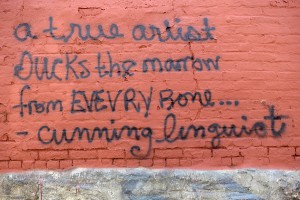 a true artist
Sucks the marrow
from EVEVRY BONE...
- cunning linguist